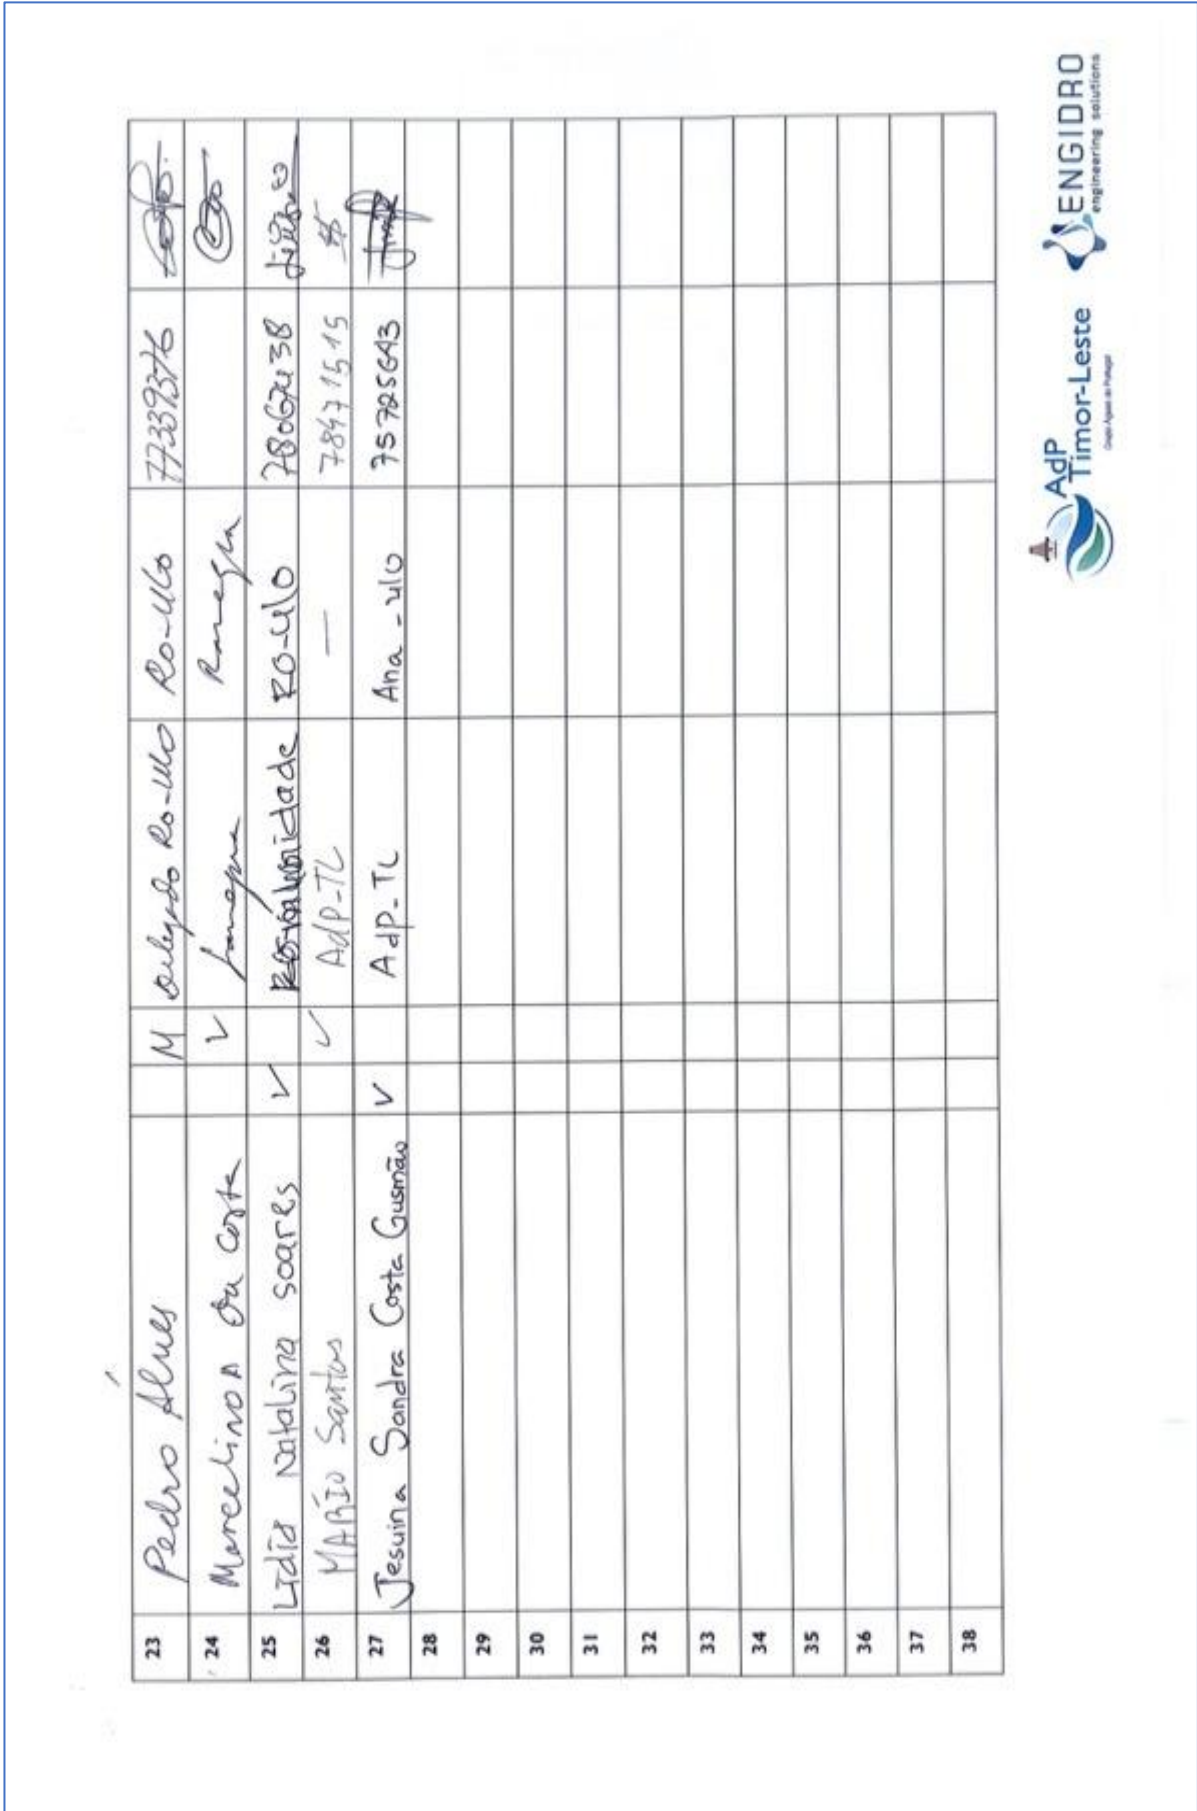 23 Pedro Alves M Delegado Ro-Ulo Ro-Ulo 77339376
24 Marcelino A Da Costa V
25 Lidia Natalina Soares V RO-Ulo
26 MARIO Santos V AdP-TL — 78471515
27 Jesuina Sandra Costa Gusmão V AdP-TL Ana-ulo 75725643
28
29
30
31
32
33
34
35
36
37
38
AdP
Timor-Leste
Grupo Águas de Portugal
ENGIDRO
engineering solutions